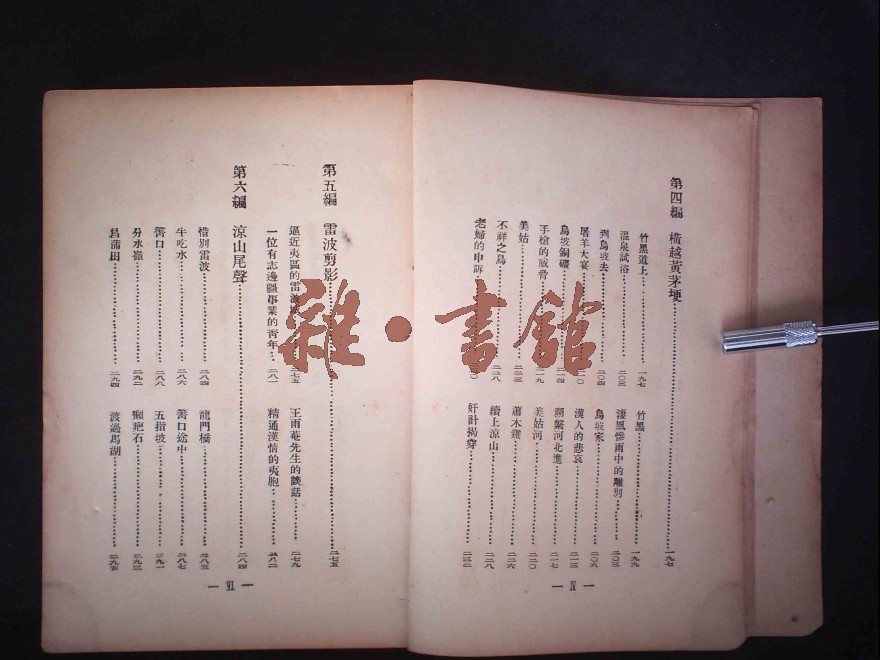 第四編 橫越黃茅埂 一九七
竹黑道上 一九七
竹黑 一九九
溫泉試浴 二〇三
淒風慘雨中的離別 二〇三
到烏坡去 二〇四
烏坡家 二〇六
屠羊大宴
漢人的悲哀 二一三
烏坡銅礦
溯鰲河北進 二一七
手槍的威脅
美姑河 二二〇
美姑 二二三
蕭木雞 二二六
不祥之鳥 二二八
續上涼山 二二八
老婦的申訴
奸計揭穿 二三二
— Ⅳ —
第五編 雷波剪影 二七五
逼近夷區的雷波
王雨菴先生的談話 二七九
一位有志邊疆事業的青年 二八一
精通漢情的夷胞 二八二
第六編 涼山尾聲 二八四
惜別雷波 二八四
龍門橋 二八五
牛吃水 二八六
箐口途中 二八七
箐口 二八八
五指坡 二九一
分水嶺 二九二
癩疤石 二九三
菖蒲田 二九四
渡過馬湖 二九五
— Ⅵ —
雜·書館